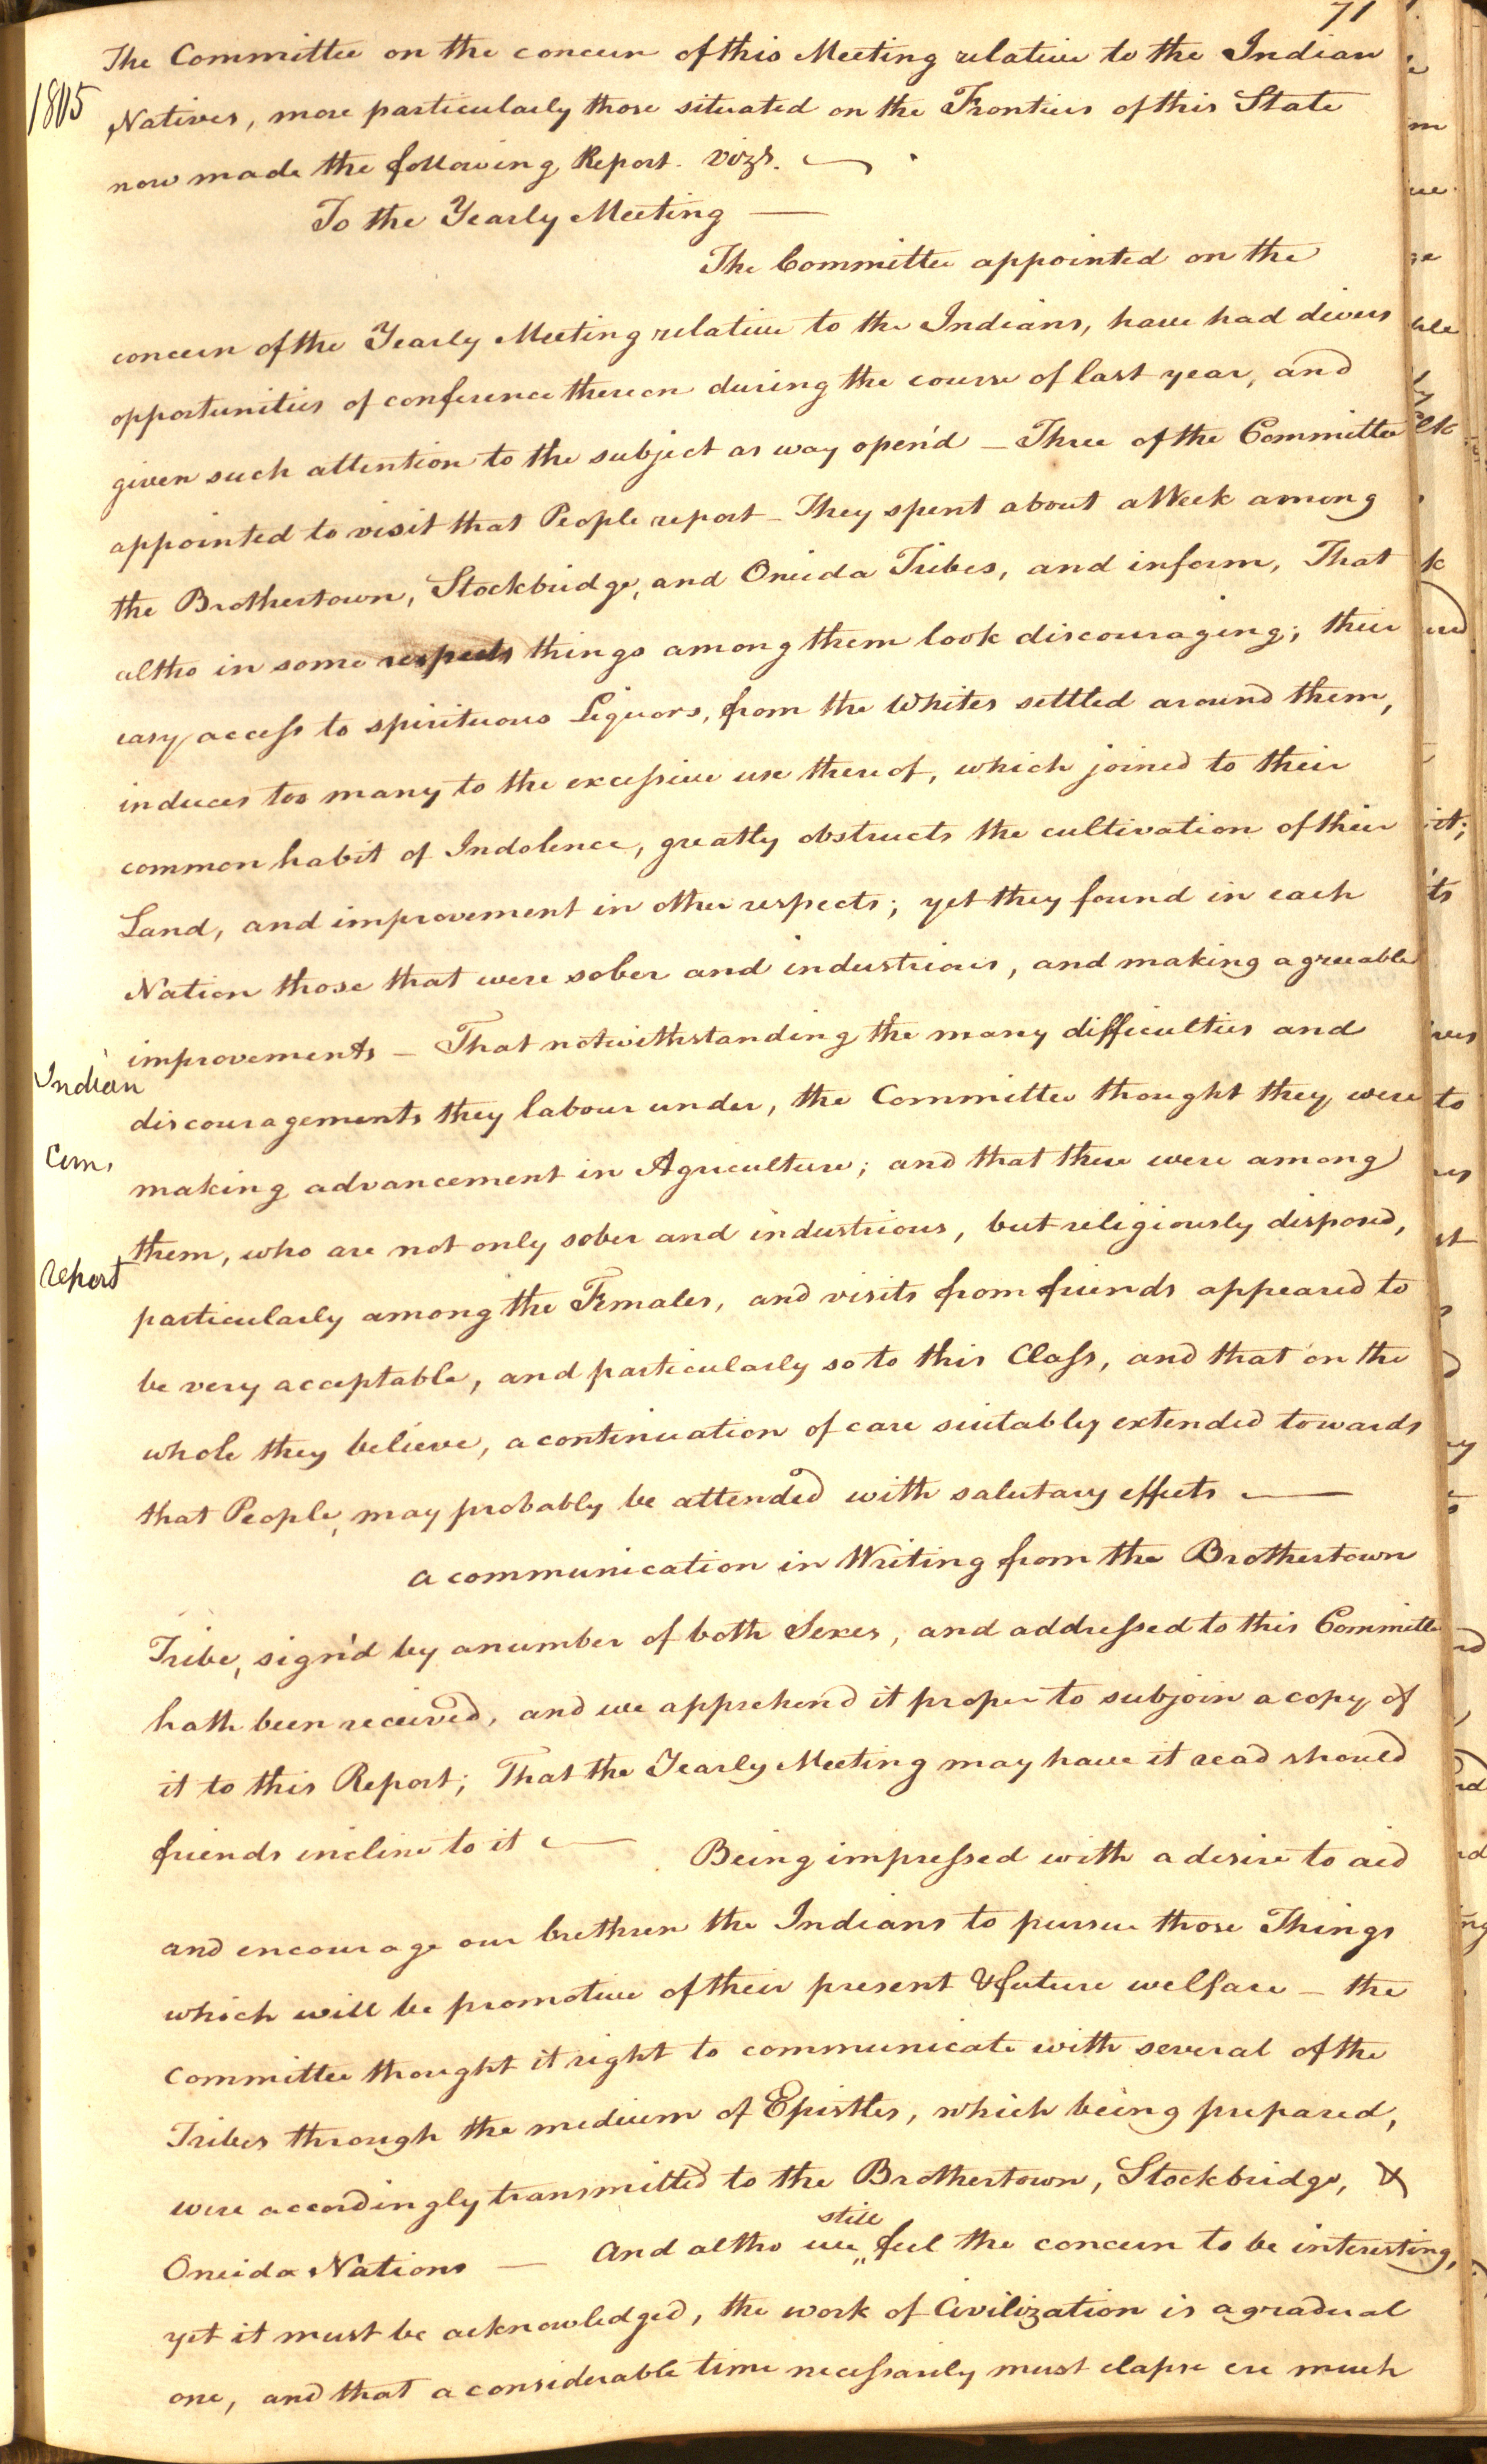 71
The Committee on the concern of this Meeting relative to the Indian
1805
Natives, more particularly those situated on the Frontiers of this State
now made the following Report. vizt.
To the Yearly Meeting —
The Committee appointed on the
concern of the Yearly Meeting relative to the Indians, have had divers
opportunities of conference thereon during the course of last year, and
given such attention to the subject as way open'd — Three of the Committee
appointed to visit that People report — They spent about a Week among
the Brothertown, Stockbridge, and Oneida Tribes, and inform, That
altho in some respects things among them look discouraging; their
easy access to spirituous Liquors, from the Whites settled around them,
induces too many to the excessive use thereof, which joined to their
common habit of Indolence, greatly obstructs the cultivation of their
Land, and improvement in other respects; yet they found in each
Nation those that were sober and industrious, and making agreeable
improvements — That notwithstanding the many difficulties and
Indian
discouragements they labour under, the Committee thought they were
Com,
making advancement in Agriculture; and that there were among
them, who are not only sober and industrious, but religiously disposed,
report
particularly among the Females, and visits from friends appeared to
be very acceptable, and particularly so to this Class, and that on the
whole they believe, a continuation of care suitably extended towards
that People, may probably be attended with salutary effects —
a communication in Writing from the Brothertown
Tribe, sign'd by a number of both Sexes, and addressed to this Committee
hath been received, and we apprehend it proper to subjoin a copy of
it to this Report; That the Yearly Meeting may have it read should
friends incline to it — Being impressed with a desire to aid
and encourage our brethren the Indians to pursue those Things
which will be promotive of their present & future welfare — the
Committee thought it right to communicate with several of the
Tribes through the medium of Epistles, which being prepared,
were accordingly transmitted to the Brothertown, Stockbridge, &
still
Oneida Nations — And altho we „ feel the concern to be interesting,
yet it must be acknowledged, the work of Civilization is a gradual
one, and that a considerable time necessarily must elapse ere much